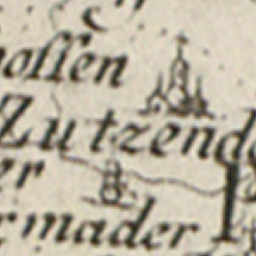 offen
Zutzend
er
mader